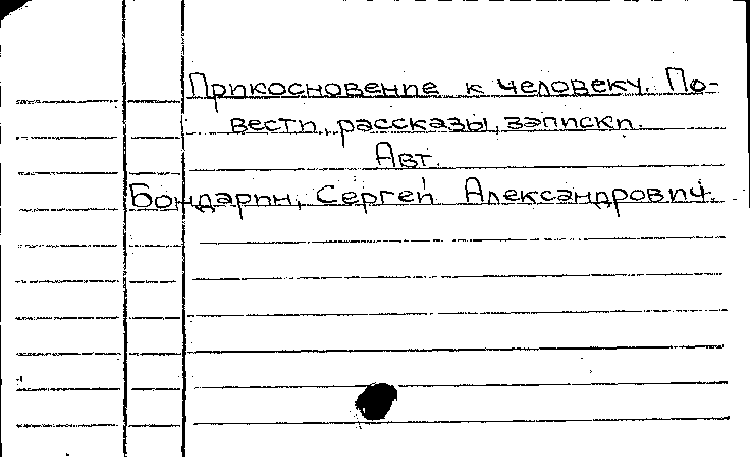 Прикосновение к человеку. По-
вести, рассказы, записки.
Авт.
Бондарин, Сергей Александрович.